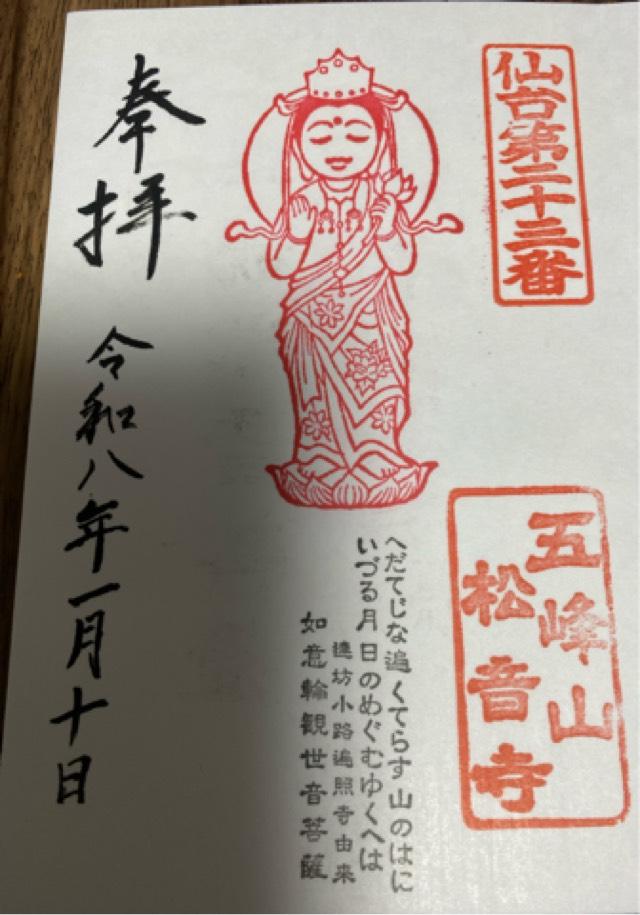 仙台第二十三番
五峰山
松音寺
へだてじな遍くてらす山のはに
いづる月日のめぐむゆくへは
連坊小路遍照寺由来
如意輪観世音菩薩
奉拝
令和八年一月十日